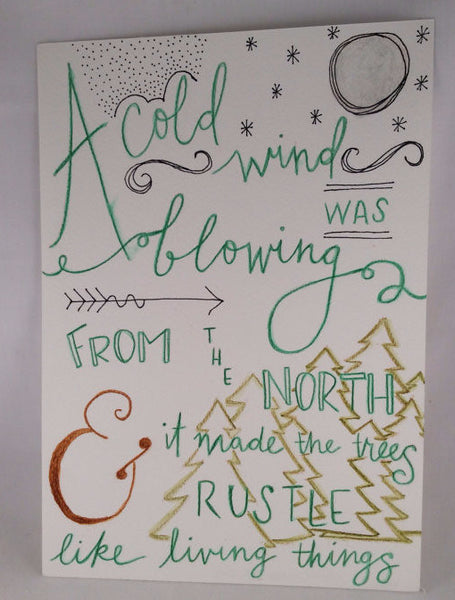 A cold
wind
WAS
blowing
FROM THE
NORTH
& it made the trees
RUSTLE
like living things